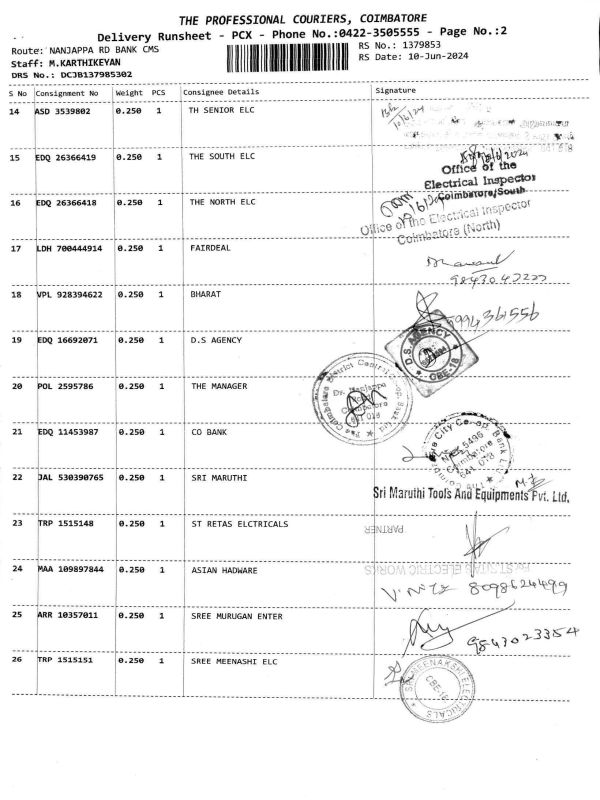 THE PROFESSIONAL COURIERS, COIMBATORE
Delivery Runsheet - PCX - Phone No.:0422-3505555 - Page No.:2
Route: NANJAPPA RD BANK CMS
RS No.: 1379853
Staff: M.KARTHIKEYAN
RS Date: 10-Jun-2024
DRS No.: DCJB137985302
S No Consignment No Weight PCS Consignee Details Signature
14 ASD 3539802 0.250 1 TH SENIOR ELC
15 EDQ 26366419 0.250 1 THE SOUTH ELC
Office of the
Electrical Inspector
Coimbatore/South
16 EDQ 26366418 0.250 1 THE NORTH ELC
Office of the Electrical Inspector
Coimbatore (North)
17 LDH 700444914 0.250 1 FAIRDEAL
18 VPL 928394622 0.250 1 BHARAT
9994361556
19 EDQ 16692071 0.250 1 D.S AGENCY
D.S. AGENCY
CBE-18
20 POL 2595786 0.250 1 THE MANAGER
21 EDQ 11453987 0.250 1 CO BANK
22 JAL 530390765 0.250 1 SRI MARUTHI
Sri Maruthi Tools And Equipments Pvt. Ltd.
23 TRP 1515148 0.250 1 ST RETAS ELCTRICALS
PARTNER
24 MAA 109897844 0.250 1 ASIAN HADWARE
8098624499
25 ARR 10357011 0.250 1 SREE MURUGAN ENTER
9843023354
26 TRP 1515151 0.250 1 SREE MEENASHI ELC
SRI MEENAKSHI ELECTRICALS
CBE-18